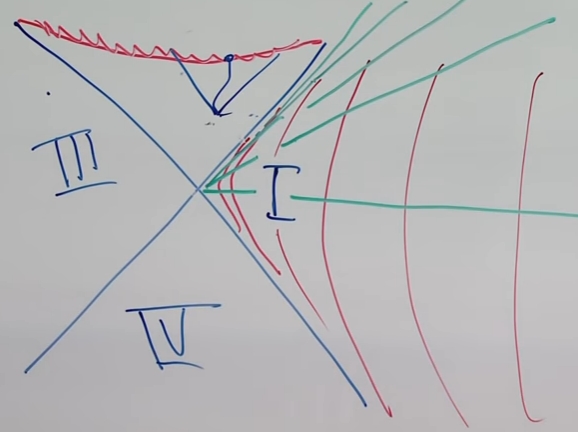 III
I
IV